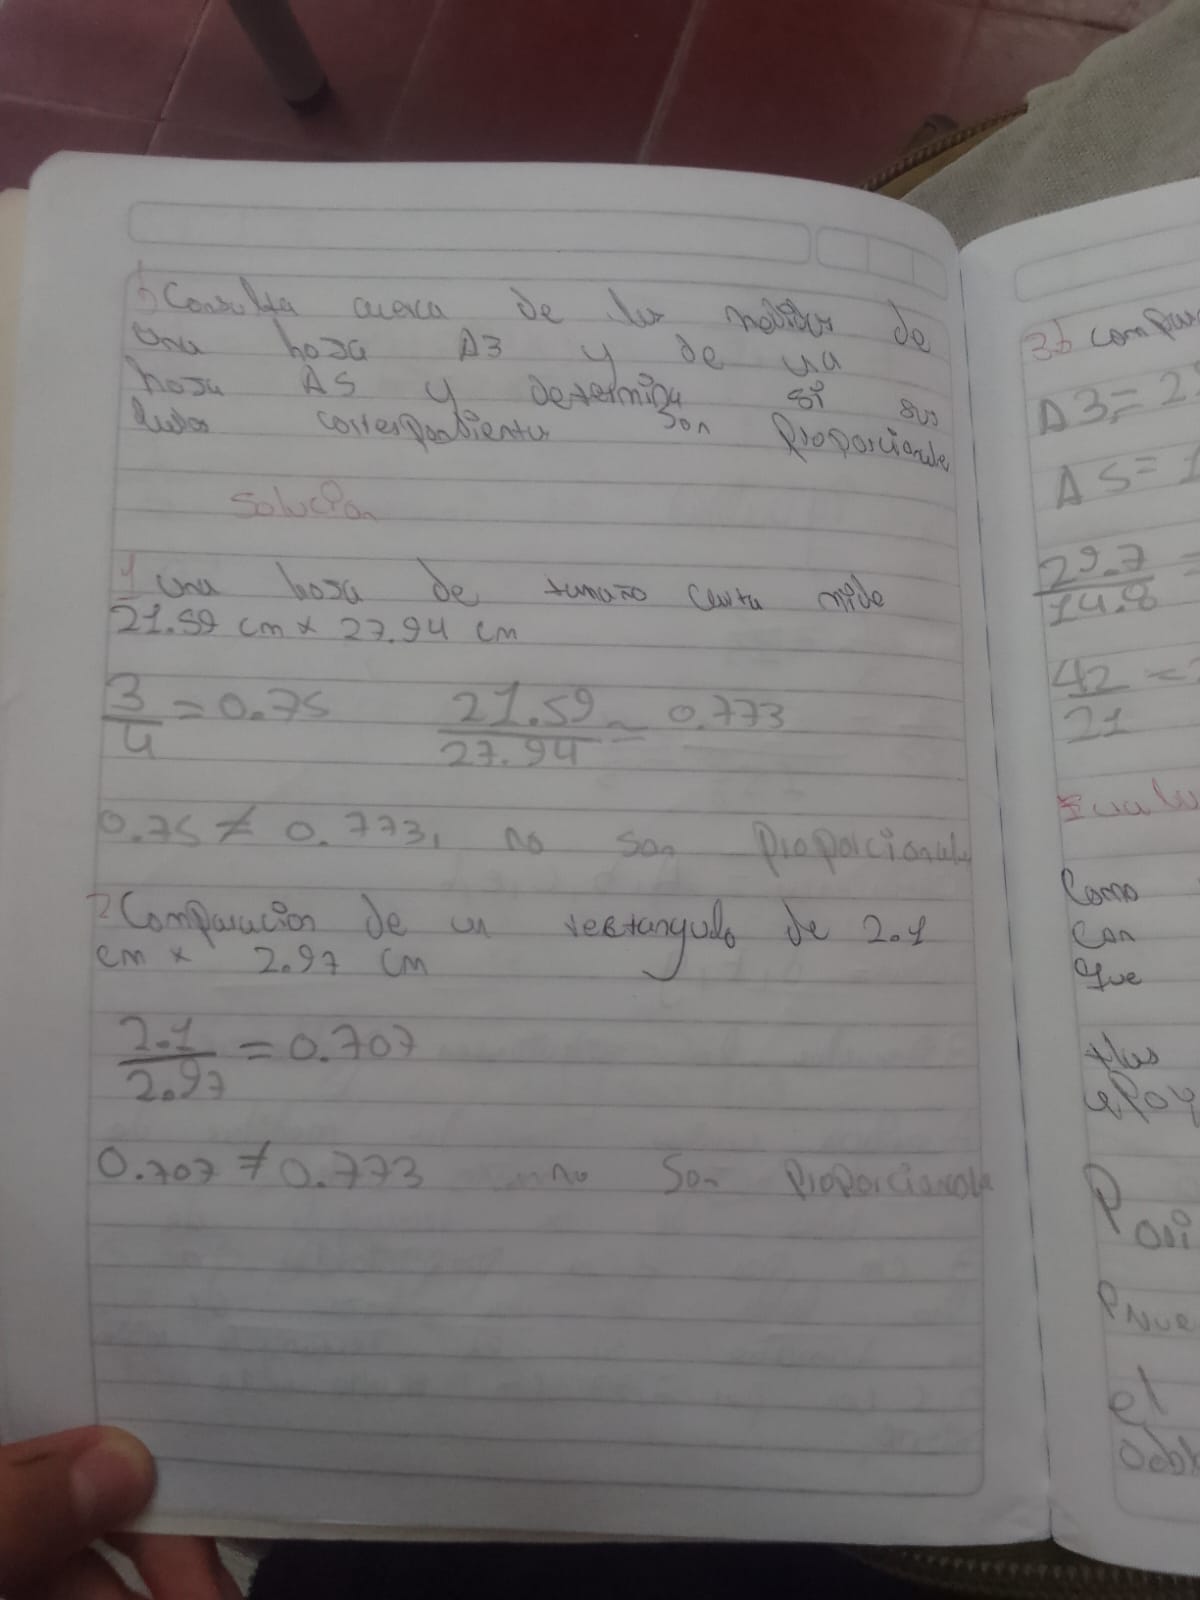 b) Consulta acerca de las medidas de
una hoja A3 y de una
hoja A5 y determina si sus
lados correspondientes son proporcionales
Solución
1 una hoja de tamaño carta mide
21.59 cm x 27.94 cm
3/4 = 0.75 21.59/27.94 = 0.773
0.75 ≠ 0.773, no son proporcionales
2 Comparación de un rectangulo de 2.1
cm x 2.97 cm
2.1/2.97 = 0.707
0.707 ≠ 0.773 no son proporcionales
3b compar
A3 = 2
A5 = 1
29.7/14.8 =
42/21 =
Como
Con
que
Posi
el